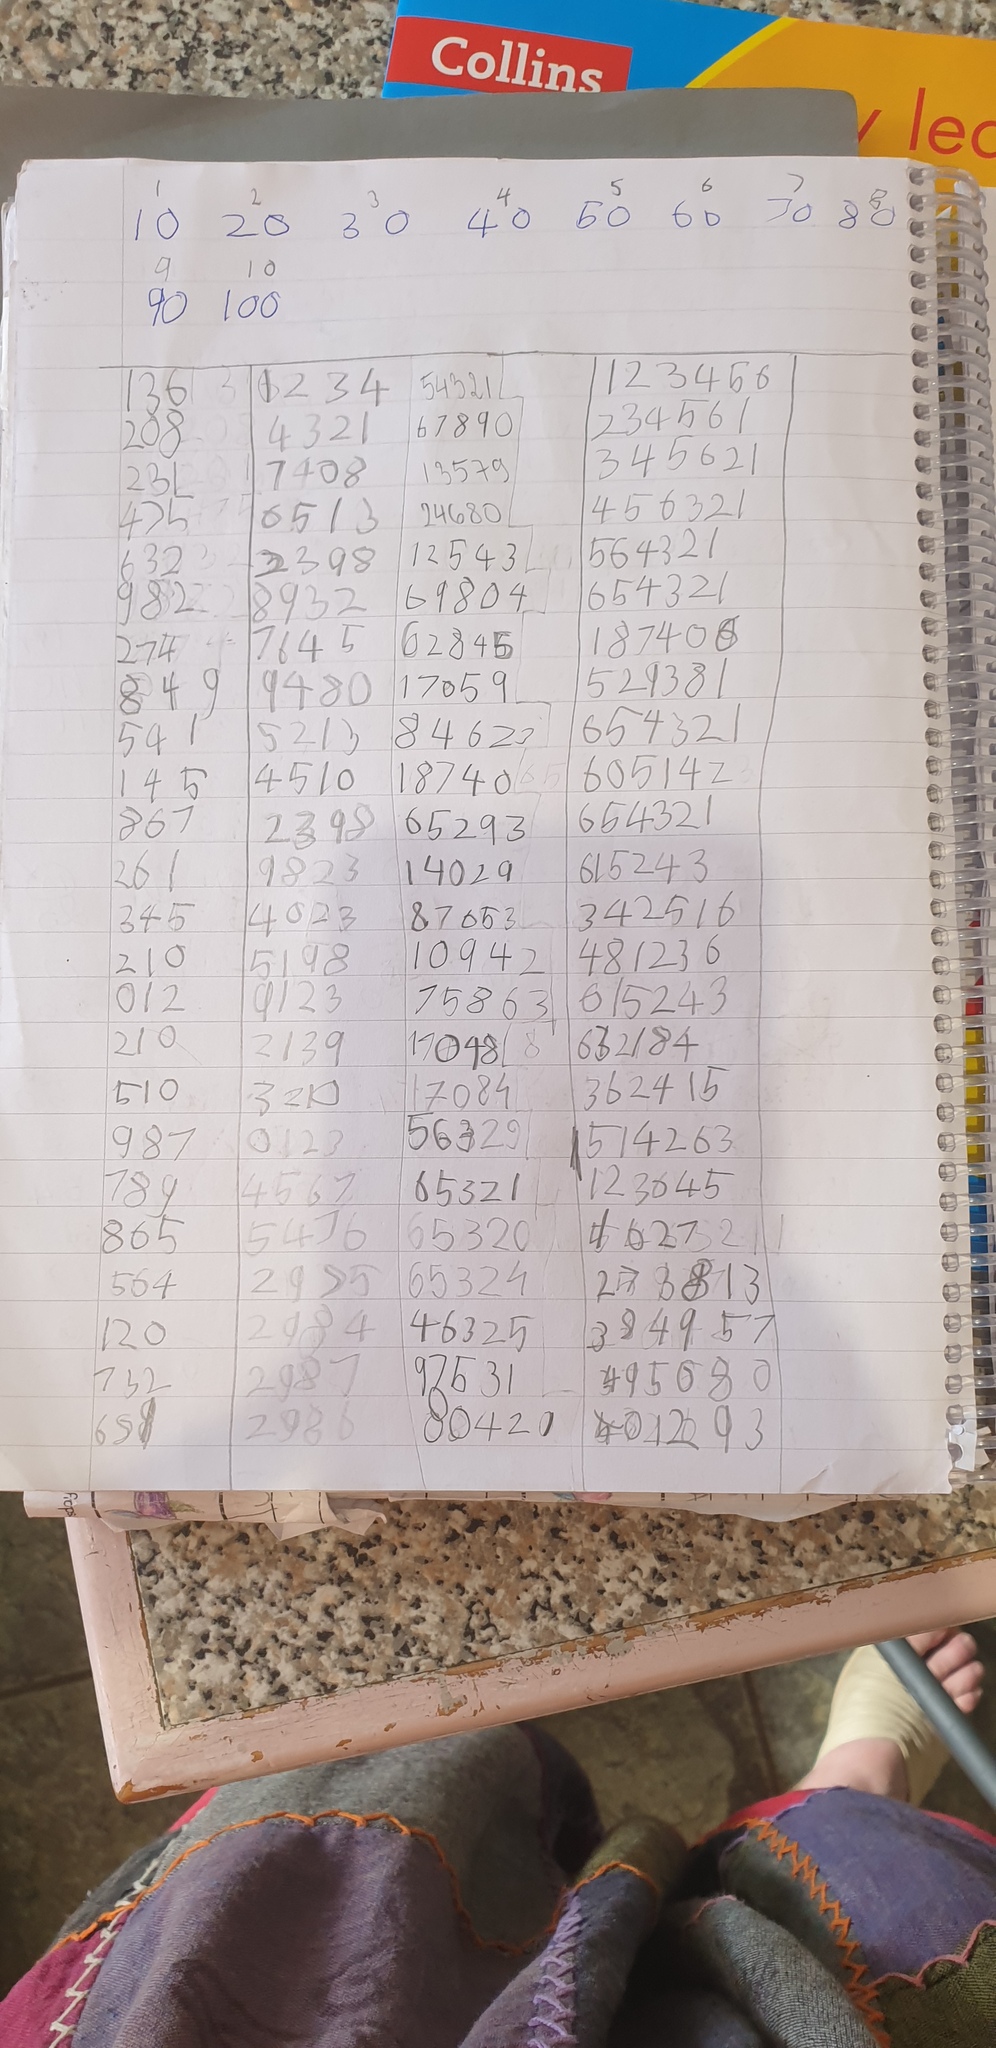 Collins
1 2 3 4 5 6 7 8
10 20 30 40 50 60 70 80
9 10
90 100
136 1234 54321 123456
208 4321 67890 234561
231 7408 13579 345621
475 6513 24680 456321
632 2398 12543 564321
982 8932 69804 654321
274 7645 62845 187406
849 9480 17059 529381
541 5213 84622 654321
145 4510 18740 605142
867 2398 65293 654321
261 9823 14029 615243
345 4023 87653 342516
210 5198 10942 481236
012 0123 75863 615243
210 2139 17048 632184
510 3210 17084 362415
987 0123 56329 514263
789 4567 65321 123645
865 5476 65320
564 2985 65324
120 2984 46325 384957
732 2987 97531 495080
2986 80420